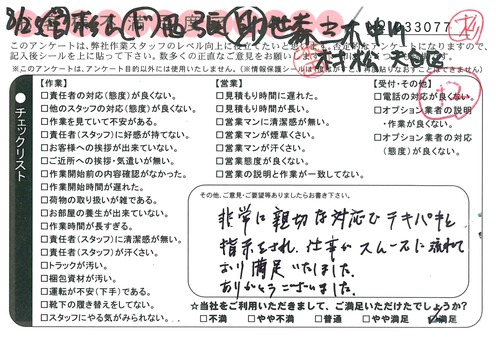 033077
このアンケートは、弊社作業スタッフのレベル向上に役立てたいと思います。否定的なアンケートになりますので、
記入後シールを上に貼って下さい。数多くの正直なご意見をお願い
※このアンケートは、アンケート目的以外には使用いたしません。(※情報保護シールは
チェックリスト
【作業】
□責任者の対応(態度)が良くない。
□他のスタッフの対応(態度)が良くない。
□作業を見ていて不安がある。
□責任者(スタッフ)に好感が持てない。
□お客様への挨拶が出来ていない。
□ご近所への挨拶・気遣いが無い。
□作業開始前の内容確認がなかった。
□作業開始時間が遅れた。
□荷物の取り扱いが雑である。
□お部屋の養生が出来ていない。
□作業時間が長すぎる。
□責任者(スタッフ)に清潔感が無い。
□責任者(スタッフ)が汗くさい。
□トラックが汚い。
□梱包資材が汚い。
□運転が不安(下手)である。
□靴下の履き替えをしてない。
□スタッフにやる気がみられない。
【営業】
□見積もり時間に遅れた。
□見積もり時間が長い。
□営業マンに清潔感が無い。
□営業マンが煙草くさい。
□営業マンが汗くさい。
□営業態度が良くない。
□営業の説明と作業が一致してない。
【受付・その他】
□電話の対応が良くない。
□オプション業者の説明
・作業が良くない。
□オプション業者の対応
(態度)が良くない。
その他、ご意見・ご要望等ありましたらお書き下さい。
非常に親切な対応で テキパキと
指示をされ、仕事が スムーズに流れて
おり満足いたしました。
ありがとうございました。
☆当社をご利用いただきまして、ご満足いただけたでしょうか?
□不満 □やや不満 □普通 □やや満足 ☑満足